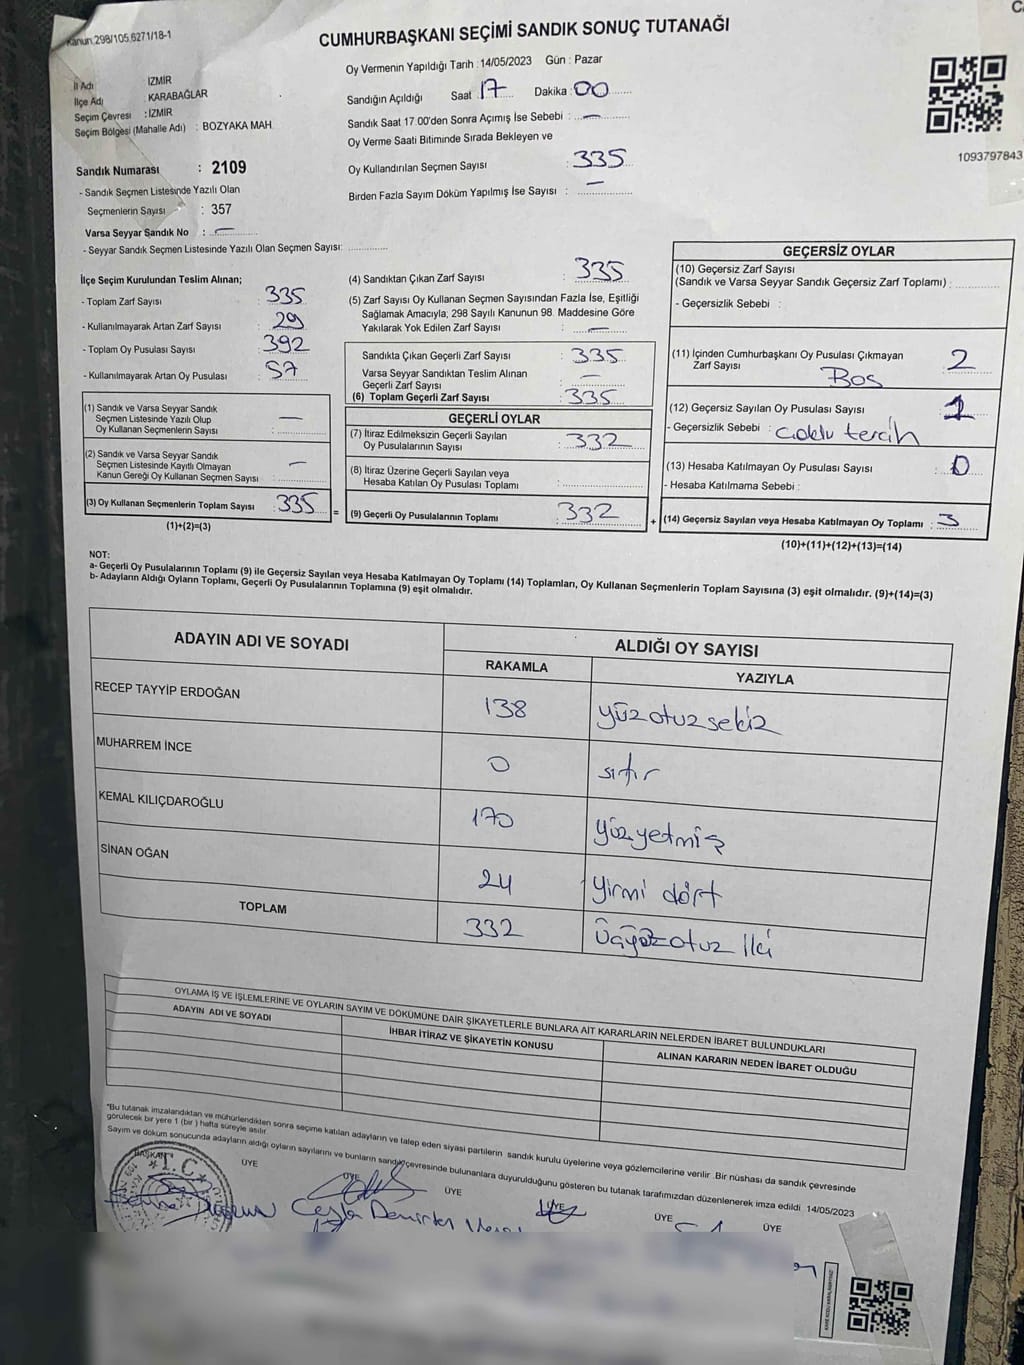 Kanun.298/105,6271/18-1
CUMHURBAŞKANI SEÇİMİ SANDIK SONUÇ TUTANAĞI
İl Adı İZMİR
İlçe Adı : KARABAĞLAR
Seçim Çevresi : İZMİR
Seçim Bölgesi (Mahalle Adı) : BOZYAKA MAH
Sandık Numarası : 2109
- Sandık Seçmen Listesinde Yazılı Olan
Seçmenlerin Sayısı : 357
Varsa Seyyar Sandık No : —
- Seyyar Sandık Seçmen Listesinde Yazılı Olan Seçmen Sayısı:
Oy Vermenin Yapıldığı Tarih : 14/05/2023 Gün : Pazar
Sandığın Açıldığı Saat : 17 Dakika : 00
Sandık Saat 17:00'den Sonra Açımış İse Sebebi : —
Oy Verme Saati Bitiminde Sırada Bekleyen ve
Oy Kullandırılan Seçmen Sayısı : 335
Birden Fazla Sayım Döküm Yapılmış İse Sayısı : —
1093797843
İlçe Seçim Kurulundan Teslim Alınan;
- Toplam Zarf Sayısı : 335
- Kullanılmayarak Artan Zarf Sayısı : 29
- Toplam Oy Pusulası Sayısı : 392
- Kullanılmayarak Artan Oy Pusulası : 57
(1) Sandık ve Varsa Seyyar Sandık
Seçmen Listesinde Yazılı Olup
Oy Kullanan Seçmenlerin Sayısı : —
(2) Sandık ve Varsa Seyyar Sandık
Seçmen Listesinde Kayıtlı Olmayan
Kanun Gereği Oy Kullanan Seçmen Sayısı : —
(3) Oy Kullanan Seçmenlerin Toplam Sayısı : 335
(1)+(2)=(3)
(4) Sandıktan Çıkan Zarf Sayısı : 335
(5) Zarf Sayısı Oy Kullanan Seçmen Sayısından Fazla İse, Eşitliği
Sağlamak Amacıyla, 298 Sayılı Kanunun 98. Maddesine Göre
Yakılarak Yok Edilen Zarf Sayısı : —
Sandıkta Çıkan Geçerli Zarf Sayısı : 335
Varsa Seyyar Sandıktan Teslim Alınan
Geçerli Zarf Sayısı : —
(6) Toplam Geçerli Zarf Sayısı : 335
GEÇERLİ OYLAR
(7) İtiraz Edilmeksizin Geçerli Sayılan
Oy Pusulalarının Sayısı : 332
(8) İtiraz Üzerine Geçerli Sayılan veya
Hesaba Katılan Oy Pusulası Toplamı :
= (9) Geçerli Oy Pusulalarının Toplamı : 332
GEÇERSİZ OYLAR
(10) Geçersiz Zarf Sayısı
(Sandık ve Varsa Seyyar Sandık Geçersiz Zarf Toplamı) :
- Geçersizlik Sebebi :
(11) İçinden Cumhurbaşkanı Oy Pusulası Çıkmayan
Zarf Sayısı : 2
Boş
(12) Geçersiz Sayılan Oy Pusulası Sayısı : 1
- Geçersizlik Sebebi : çoklu tercih
(13) Hesaba Katılmayan Oy Pusulası Sayısı : 0
- Hesaba Katılmama Sebebi :
+ (14) Geçersiz Sayılan veya Hesaba Katılmayan Oy Toplamı : 3
(10)+(11)+(12)+(13)=(14)
NOT:
a- Geçerli Oy Pusulalarının Toplamı (9) ile Geçersiz Sayılan veya Hesaba Katılmayan Oy Toplamı (14) Toplamları, Oy Kullanan Seçmenlerin Toplam Sayısına (3) eşit olmalıdır. (9)+(14)=(3)
b- Adayların Aldığı Oyların Toplamı, Geçerli Oy Pusulalarının Toplamına (9) eşit olmalıdır.
ADAYIN ADI VE SOYADI
ALDIĞI OY SAYISI
RAKAMLA YAZIYLA
RECEP TAYYİP ERDOĞAN 138 yüzotuzsekiz
MUHARREM İNCE 0 sıfır
KEMAL KILIÇDAROĞLU 170 yüzyetmiş
SİNAN OĞAN 24 yirmi dört
TOPLAM 332 üçyüzotuz iki
OYLAMA İŞ VE İŞLEMLERİNE VE OYLARIN SAYIM VE DÖKÜMÜNE DAİR ŞİKAYETLERLE BUNLARA AİT KARARLARIN NELERDEN İBARET BULUNDUKLARI
ADAYIN ADI VE SOYADI
İHBAR İTİRAZ VE ŞİKAYETİN KONUSU
ALINAN KARARIN NEDEN İBARET OLDUĞU
"Bu tutanak imzalandıktan ve mühürlendikten sonra seçime katılan adayların ve talep eden siyasi partilerin sandık kurulu üyelerine veya gözlemcilerine verilir. Bir nüshası da sandık çevresinde
görülecek bir yere 1 (bir) hafta süreyle asılır.
Sayım ve döküm sonucunda adayların aldığı oyların sayılarını ve bunların sandık çevresinde bulunanlara duyurulduğunu gösteren bu tutanak tarafımızdan düzenlenerek imza edildi. 14/05/2023
BAŞKAN
T.C
ÜYE
ÜYE
ÜYE
ÜYE
ÜYE
ÜYE
Ceyla